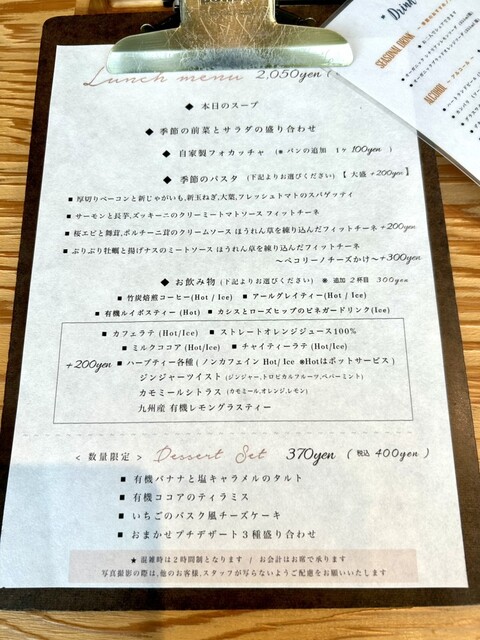 Lunch menu 2,050yen (
◆ 本日のスープ
◆ 季節の前菜とサラダの盛り合わせ
◆ 自家製フォカッチャ (※ パンの追加 1ヶ 100yen )
◆ 季節のパスタ (下記よりお選びください) 【 大盛 +200yen 】
■ 厚切りベーコンと新じゃがいも,新玉ねぎ,大葉,フレッシュトマトのスパゲッティ
■ サーモンと長芋,ズッキーニのクリーミートマトソース フィットチーネ
■ 桜エビと舞茸,ポルチーニ茸のクリームソース ほうれん草を練り込んだフィットチーネ +200yen
■ ぷりぷり牡蠣と揚げナスのミートソース ほうれん草を練り込んだフィットチーネ
〜ペコリーノチーズかけ〜+300yen
◆ お飲み物 (下記よりお選びください) ※ 追加 2杯目 300yen
■ 竹炭焙煎コーヒー(Hot / Ice) ■ アールグレイティー(Hot / Ice)
■ 有機ルイボスティー (Hot) ■ カシスとローズヒップのビネガードリンク(Ice)
■ カフェラテ (Hot/Ice) ■ ストレートオレンジジュース100%
■ ミルクココア (Hot/Ice) ■ チャイティーラテ (Hot/Ice)
+200yen ■ ハーブティー各種 ( ノンカフェイン Hot/ Ice ※Hotはポットサービス )
ジンジャーツイスト (ジンジャー,トロピカルフルーツ,ペパーミント)
カモミールシトラス (カモミール,オレンジ,レモン)
九州産 有機レモングラスティー
< 数量限定 > Dessert Set 370yen ( 税込 400yen )
■ 有機バナナと塩キャラメルのタルト
■ 有機ココアのティラミス
■ いちごのバスク風チーズケーキ
■ おまかせプチデザート3種盛り合わせ
★ 混雑時は2時間制となります / お会計はお席で承ります
写真撮影の際は,他のお客様,スタッフが写らないようご配慮をお願いいたします
" Drin
SEASONAL DRINK
ALCOHOL